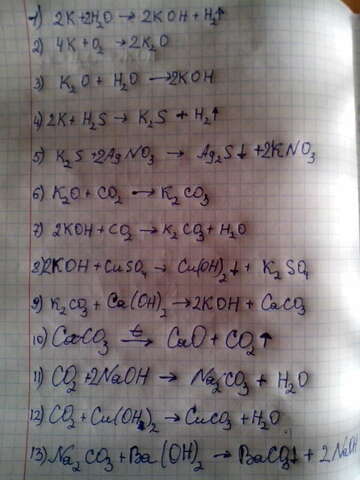 1) 2K+2H₂O → 2KOH + H₂↑
2) 4K + O₂ → 2K₂O
3) K₂O + H₂O → 2KOH
4) 2K + H₂S → K₂S + H₂↑
5) K₂S + 2AgNO₃ → Ag₂S↓ + 2KNO₃
6) K₂O + CO₂ → K₂CO₃
7) 2KOH + CO₂ → K₂CO₃ + H₂O
8) 2KOH + CuSO₄ → Cu(OH)₂↓ + K₂SO₄
9) K₂CO₃ + Ca(OH)₂ → 2KOH + CaCO₃
10) CaCO₃ →ᵗ CaO + CO₂↑
11) CO₂ + 2NaOH → Na₂CO₃ + H₂O
12) CO₂ + Cu(OH)₂ → CuCO₃ + H₂O
13) Na₂CO₃ + Ba(OH)₂ → BaCO₃↓ + 2NaOH